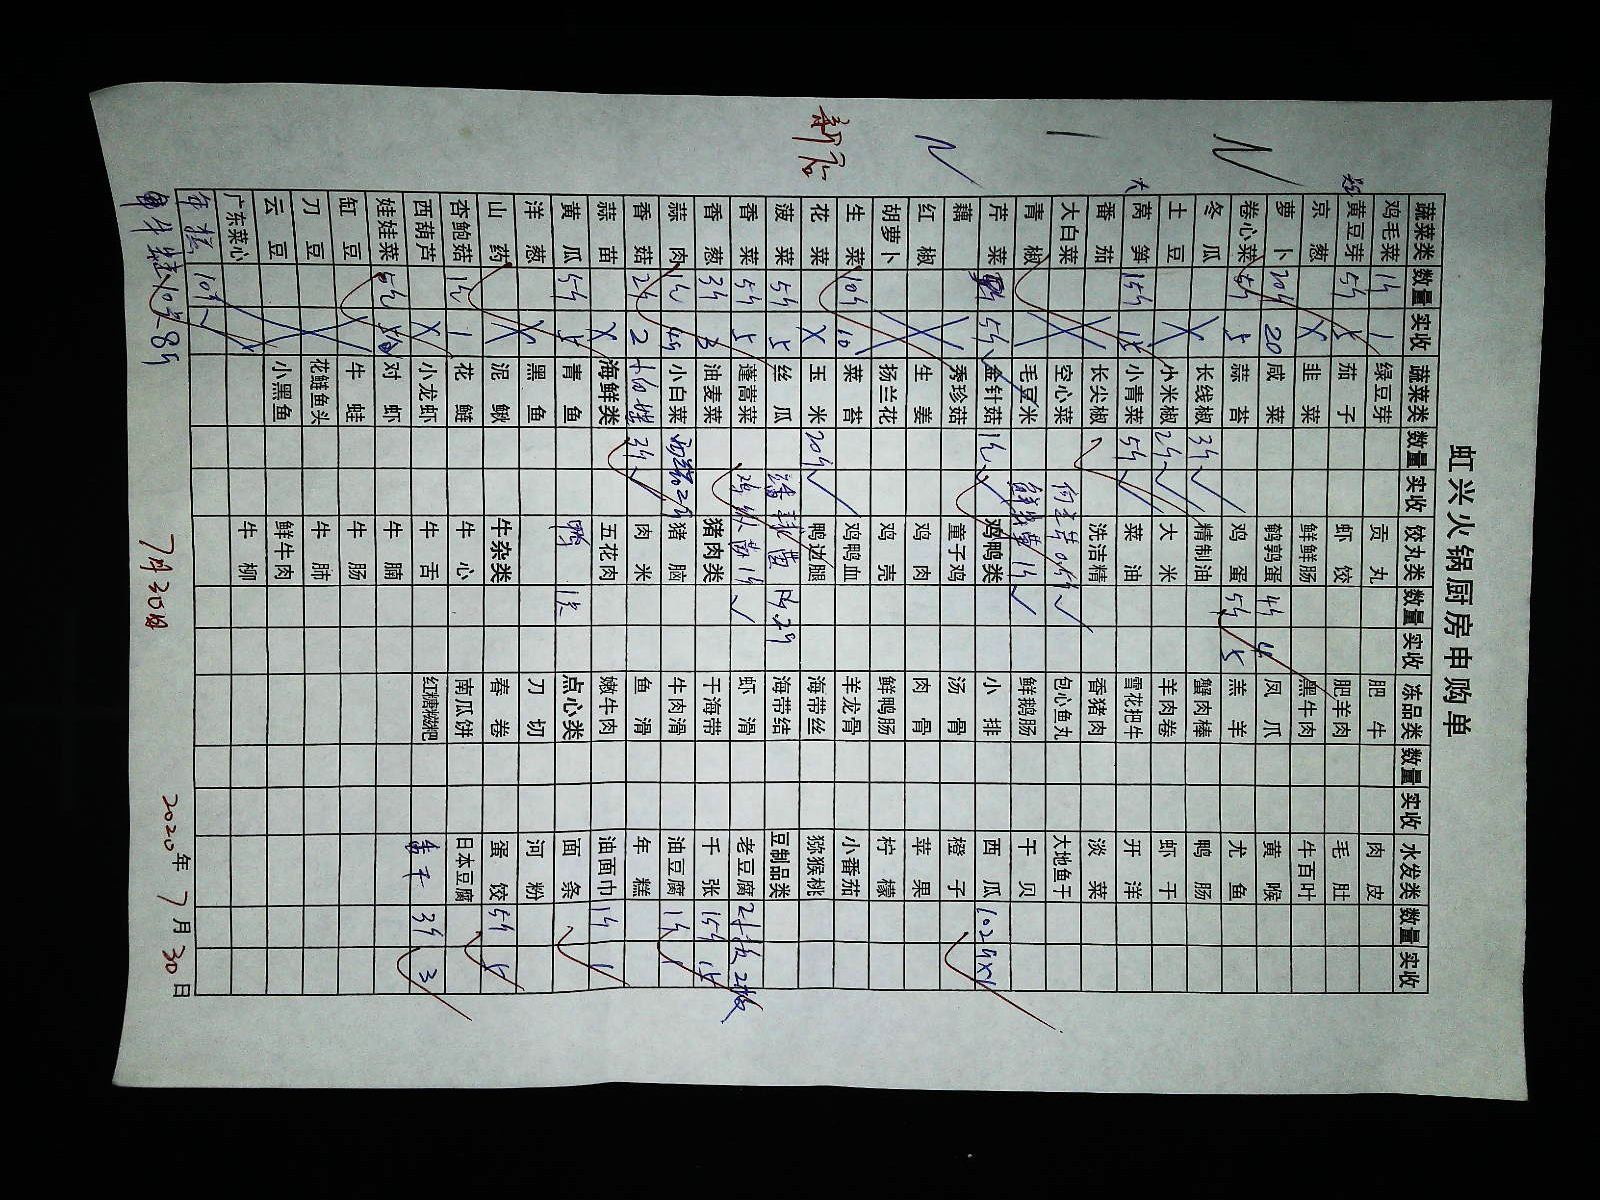 虹兴火锅厨房申购单
蔬菜类 数量 实收 蔬菜类 数量 实收 饺丸类 数量 实收 冻品类 数量 实收 水发类 数量 实收
鸡毛菜 1斤 1 绿豆芽 贡丸 肥牛 肉皮
黄豆芽 5斤 5 茄子 虾饺 肥羊肉 毛肚
京葱 X 韭菜 鲜鲜肠 黑牛肉 牛百叶
萝卜 20斤 20 咸菜 鹌鹑蛋 4斤 4 凤爪 黄喉
卷心菜 5斤 5 蒜苔 鸡蛋 5斤 5 羔羊 尤鱼
冬瓜 X 长线椒 3斤 精制油 蟹肉棒 鸭肠
土豆 X 小米椒 2斤 大米 羊肉卷 虾干
莴笋 15斤 15 小青菜 5斤 菜油 雪花把牛 开洋
番茄 长尖椒 洗洁精 香猪肉 淡菜
大白菜 X 空心菜 包心鱼丸 大地鱼干
青椒 X 毛豆米 1斤 鲜鹅肠 干贝
芹菜 5斤 金针菇 1包 鸡鸭类 小排 西瓜 102斤X1
藕 秀珍菇 童子鸡 汤骨 橙子
红椒 X 生姜 鸡肉 肉骨 苹果
胡萝卜 X 扬兰花 鸡壳 鲜鸭肠 柠檬
生菜 10斤 10 菜苔 鸡鸭血 羊龙骨 小番茄
花菜 X 玉米 20斤 鸭边腿 海带丝 猕猴桃
菠菜 5斤 5 丝瓜 海带结 豆制品类
香菜 5斤 5 蓬蒿菜 1斤 虾滑 老豆腐 2板 2板
香葱 3斤 3 油麦菜 猪肉类 干海带 千张 15斤 15
蒜肉 小白菜 猪脑 牛肉滑 油豆腐 1斤 1
香菇 2斤 2 3斤 肉米 鱼滑 年糕
蒜苗 X 海鲜类 五花肉 嫩牛肉 油面巾 1斤 1
黄瓜 5斤 5 青鱼 点心类 面条
洋葱 X 黑鱼 刀切 河粉
山药 X 泥鳅 牛杂类 春卷 蛋饺 5斤 5
杏鲍菇 1包 1 花鲢 牛心 南瓜饼 日本豆腐
西葫芦 X 小龙虾 牛舌 红糖糍粑 香干 3斤 3
娃娃菜 5包 对虾 牛腩
缸豆 牛蛙 牛肠
刀豆 花鲢鱼头 牛肺
云豆 小黑鱼 鲜牛肉
广东菜心 牛柳
10斤
7月30日 2020年7月30日